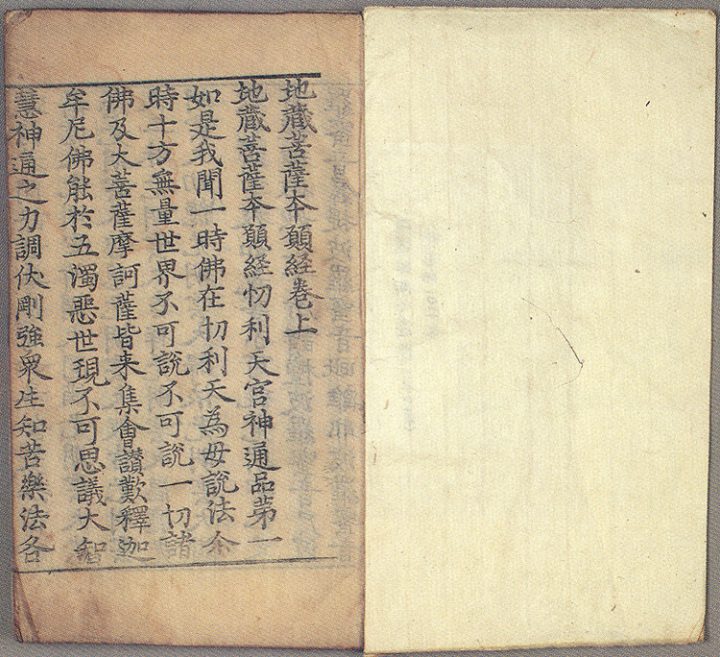 地藏菩薩夲願経卷上
地藏菩薩夲願経忉利天宮神通品苐一
如是我聞一時佛在忉利天為母說法尒
時十方無量世界不可說不可說一切諸
佛及大菩薩摩訶薩皆来集會讃歎釋迦
牟尼佛能於五濁惡世現不可思議大智
慧神通之力調伏剛強衆生知苦樂法各